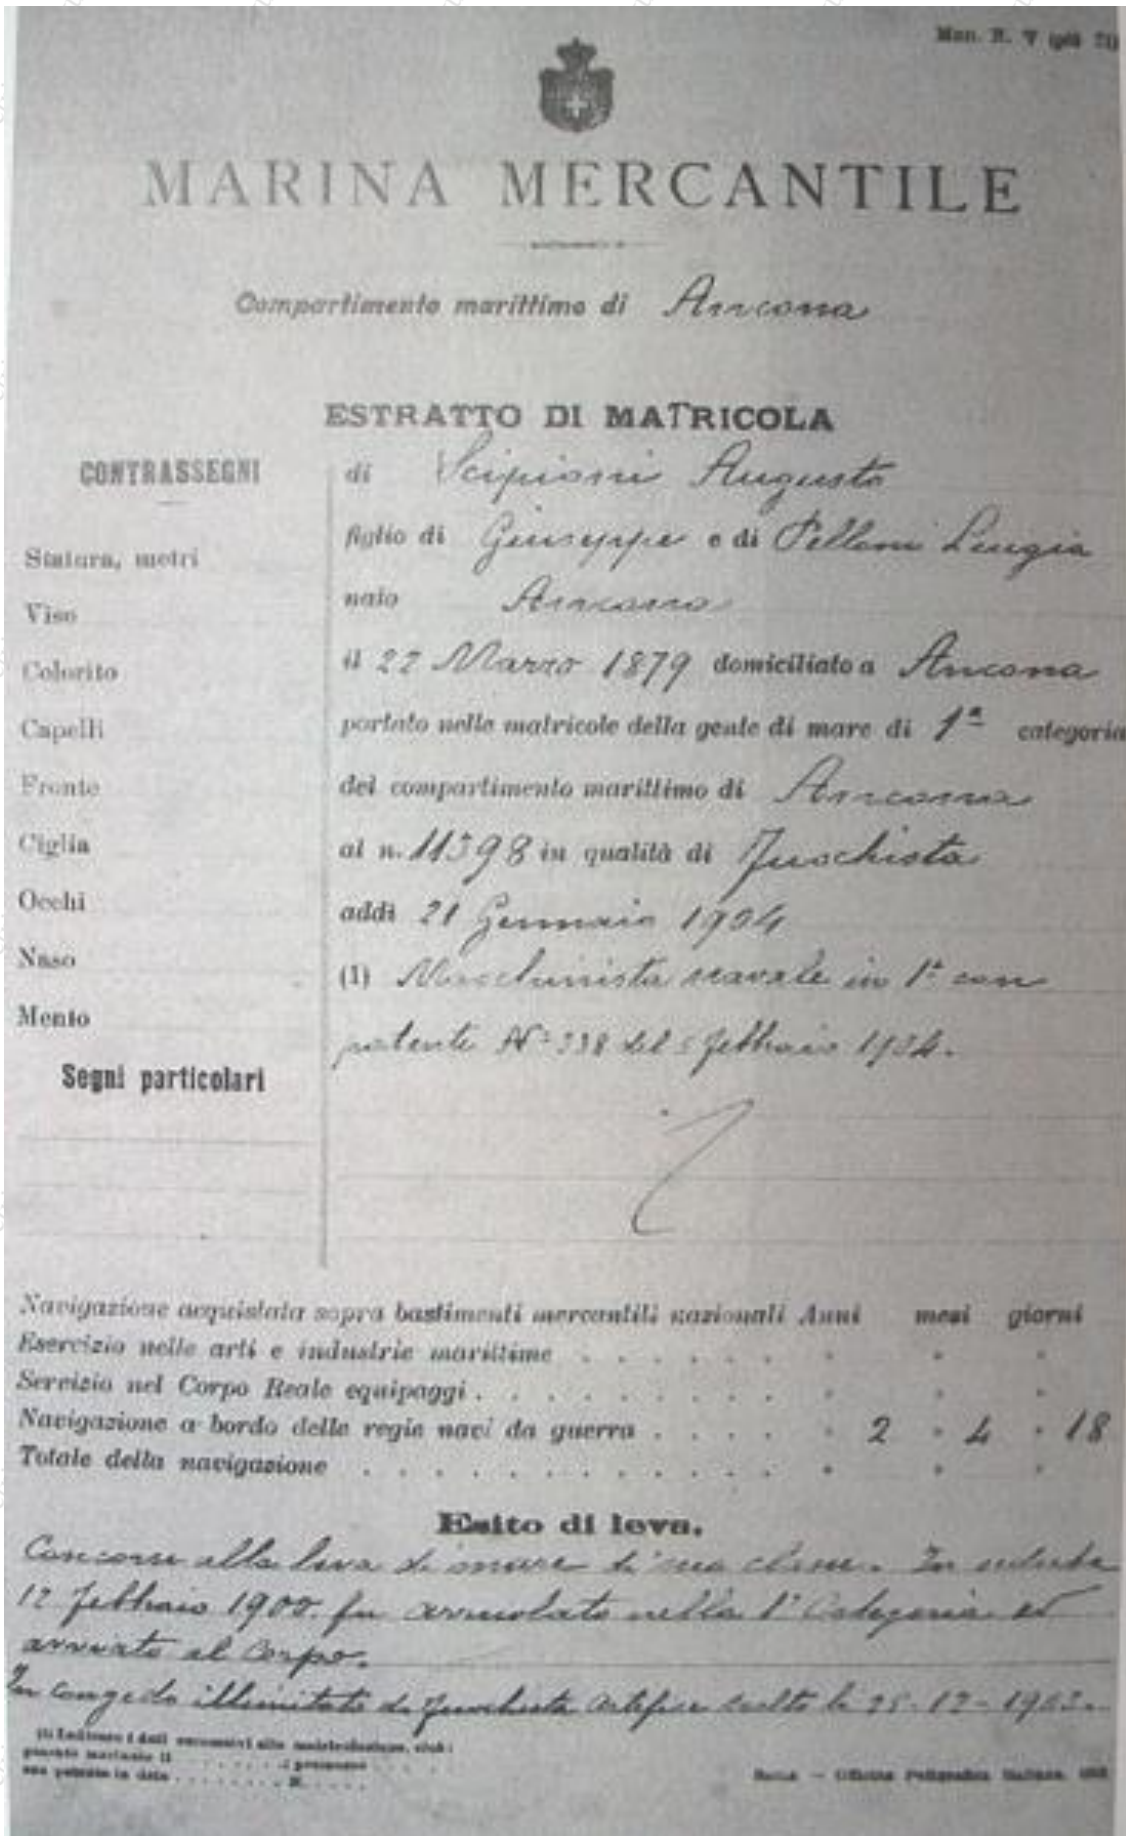 MARINA MERCANTILE
Compartimento marittimo di Ancona
ESTRATTO DI MATRICOLA
CONTRASSEGNI
Statura, metri
Viso
Colorito
Capelli
Fronte
Ciglia
Occhi
Naso
Mento
Segni particolari
di Scipioni Augusto
figlio di Giuseppe e di Pelloni Luigia
nato Ancona
il 22 Marzo 1879 domiciliato a Ancona
portato nelle matricole della gente di mare di 1ª categoria
del compartimento marittimo di Ancona
al n. 11398 in qualità di Fuochista
addì 21 Gennaio 1904
(1) Macchinista navale in 1ª con
patente Nº 338 del 5 febbraio 1904.
Navigazione acquistata sopra bastimenti mercantili nazionali Anni mesi giorni
Esercizio nelle arti e industrie marittime
Servizio nel Corpo Reale equipaggi
Navigazione a bordo delle regie navi da guerra 2 4 18
Totale della navigazione
Esito di leva.
Concorse alla leva di mare di sua classe. In seduta
12 febbraio 1900 fu arruolato nella 1ª Categoria ed
avviato al Corpo.
In congedo illimitato da fuochista artefice scelto li 25-12-1903
(1) Indicare i dati successivi alla matricolazione, cioè:
Roma — Officina Poligrafica Italiana,